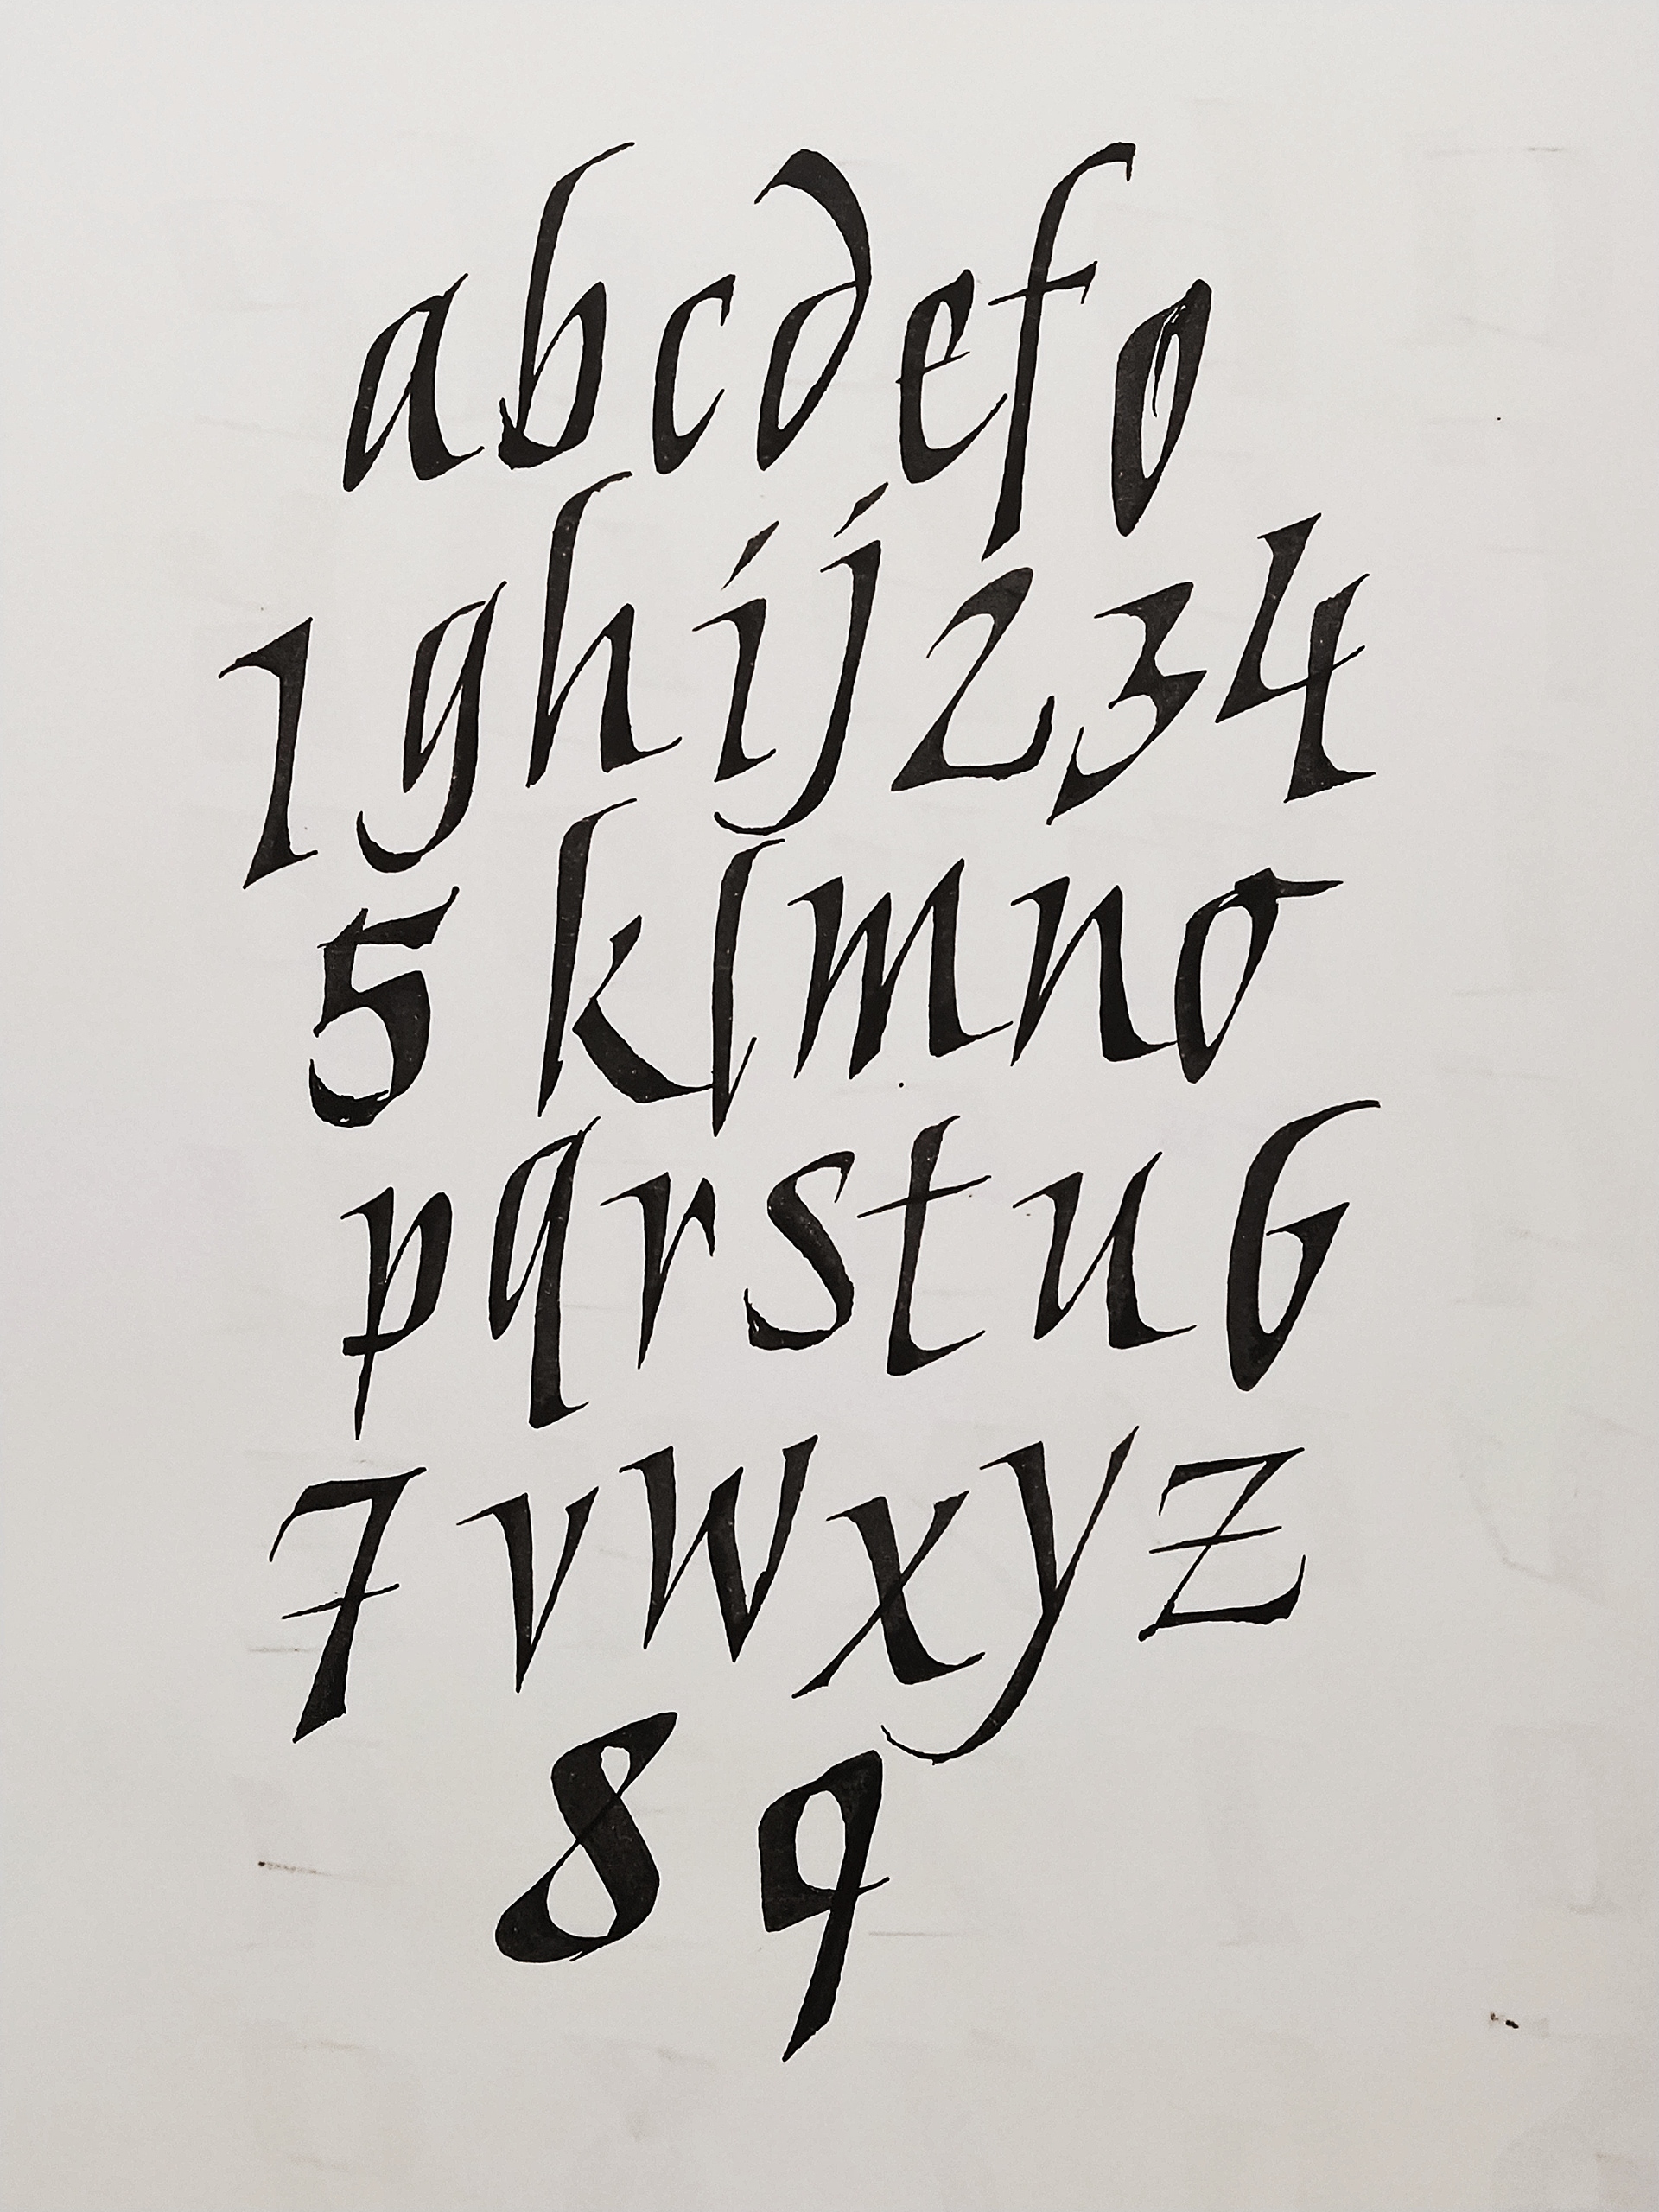 abcdef0
1ghij234
5klmno
pqrstu6
7vwxyz
89